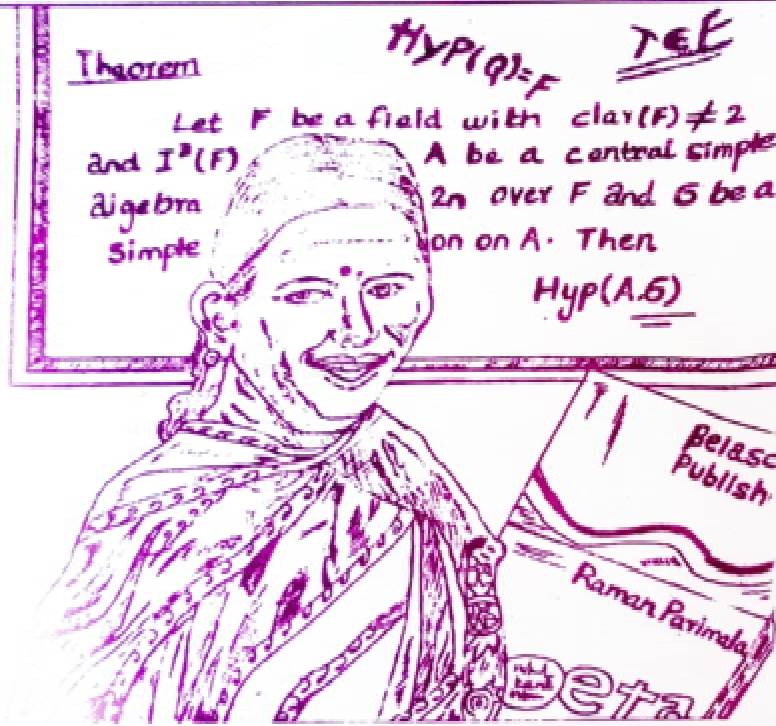 HYP(q)=F
TEE
Theorem
Let F be a field with clar(F) ≠ 2
and I³(F) A be a central simple
algebra 2n over F and 6 be a
Simple on on A. Then
Hyp(A.6)
Belasc
Publish
Raman Parimala
Beta